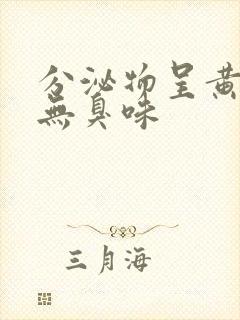 分泌物呈黄
無臭味
三月海